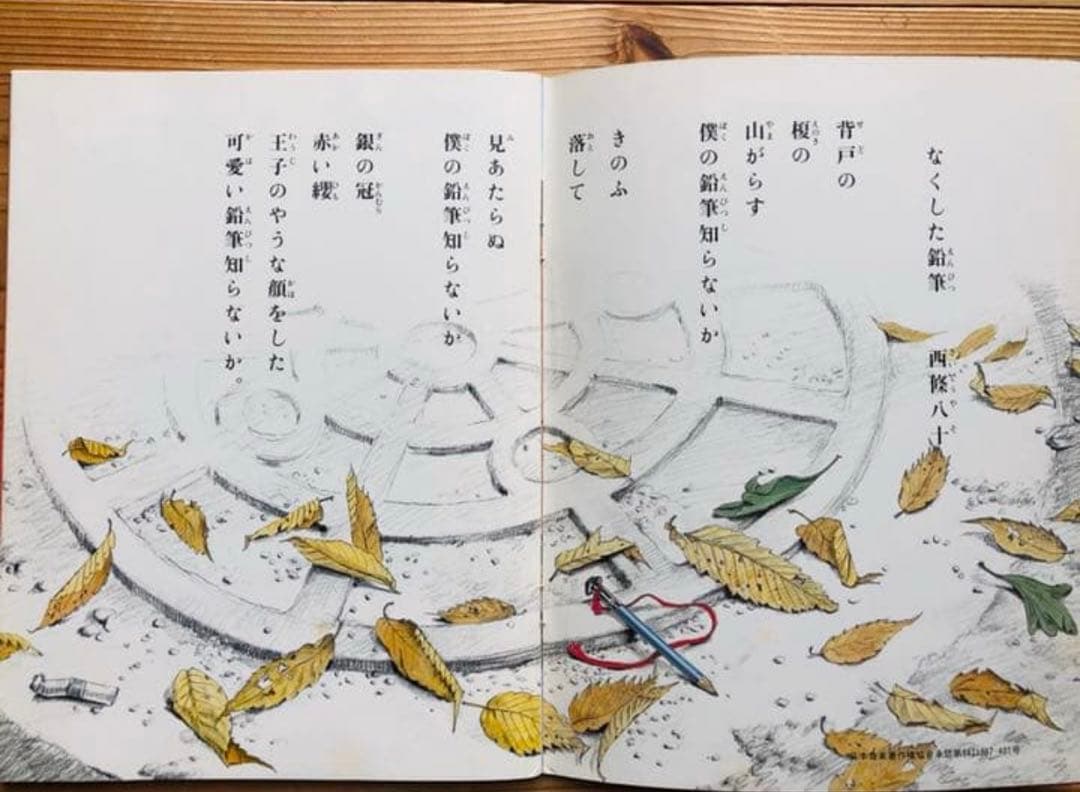 なくした鉛筆 西條八十
背戸の
榎の
山がらす
僕の鉛筆知らないか
きのふ
落して
見あたらぬ
僕の鉛筆知らないか
銀の冠
赤い纓
王子のやうな顔をした
可愛い鉛筆知らないか。